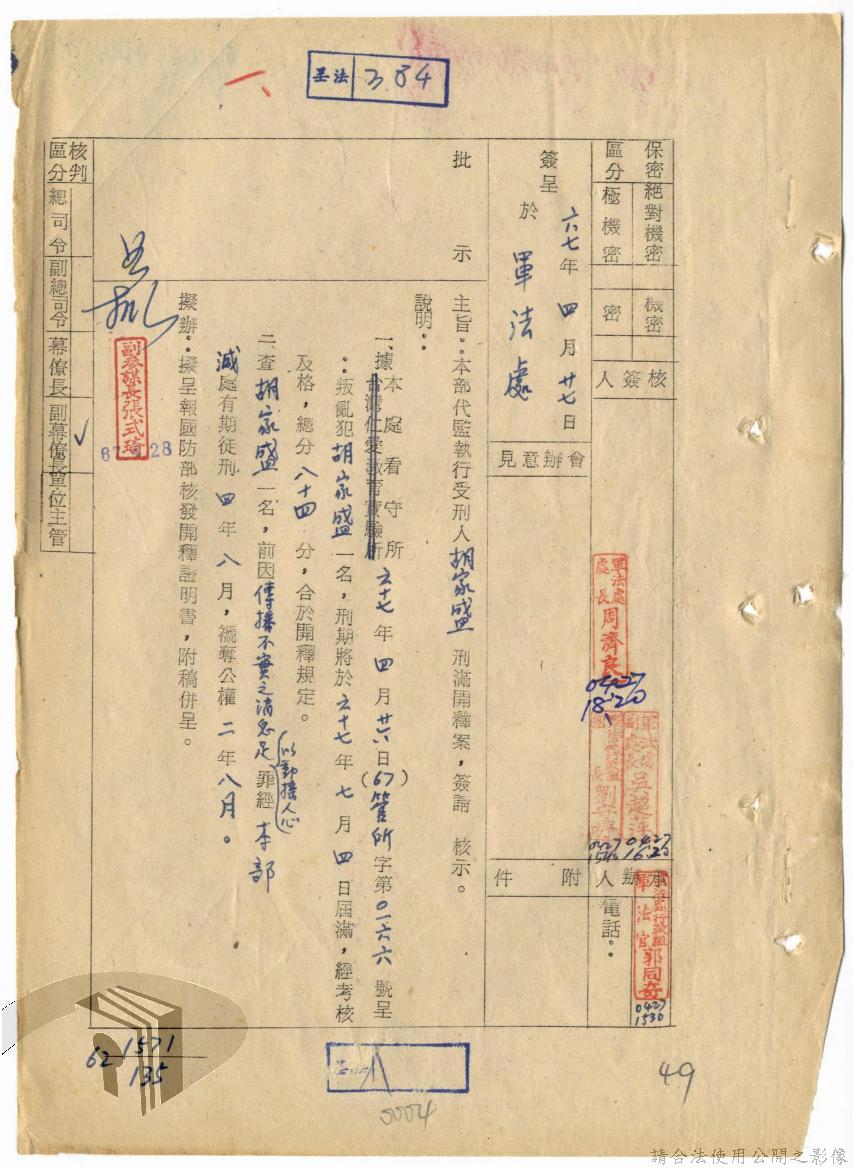 一、
丟法 384
保密區分
絕對機密
極機密
機密
密
核簽人
簽呈
六七年四月廿七日
於 軍法處
會辦意見
批示
軍法處處長周濟良
0427
18:20
0427
16:20
附件
承辦人
電話：
軍法官郭同奇
0427
1530
主旨：本部代監執行受刑人胡家盛刑滿開釋案，簽請 核示。
說明：
一、據本處看守所六十七年四月廿六日(67)管所字第0一六六號呈
台灣仁愛教育實驗所
：叛亂犯胡家盛一名，刑期將於六十七年七月四日屆滿，經考核
及格，總分八十四分，合於開釋規定。
二、查胡家盛一名，前因傳播不實之消息足以動搖人心罪經本部
減處有期徒刑四年八月，褫奪公權二年八月。
擬辦：擬呈報國防部核發開釋證明書，附稿併呈。
副參謀長張式琦
核判區分
總司令
副總司令
幕僚長
副幕僚長
單位主管
✓
62 1571
135
0004
49
請合法使用公開之影像